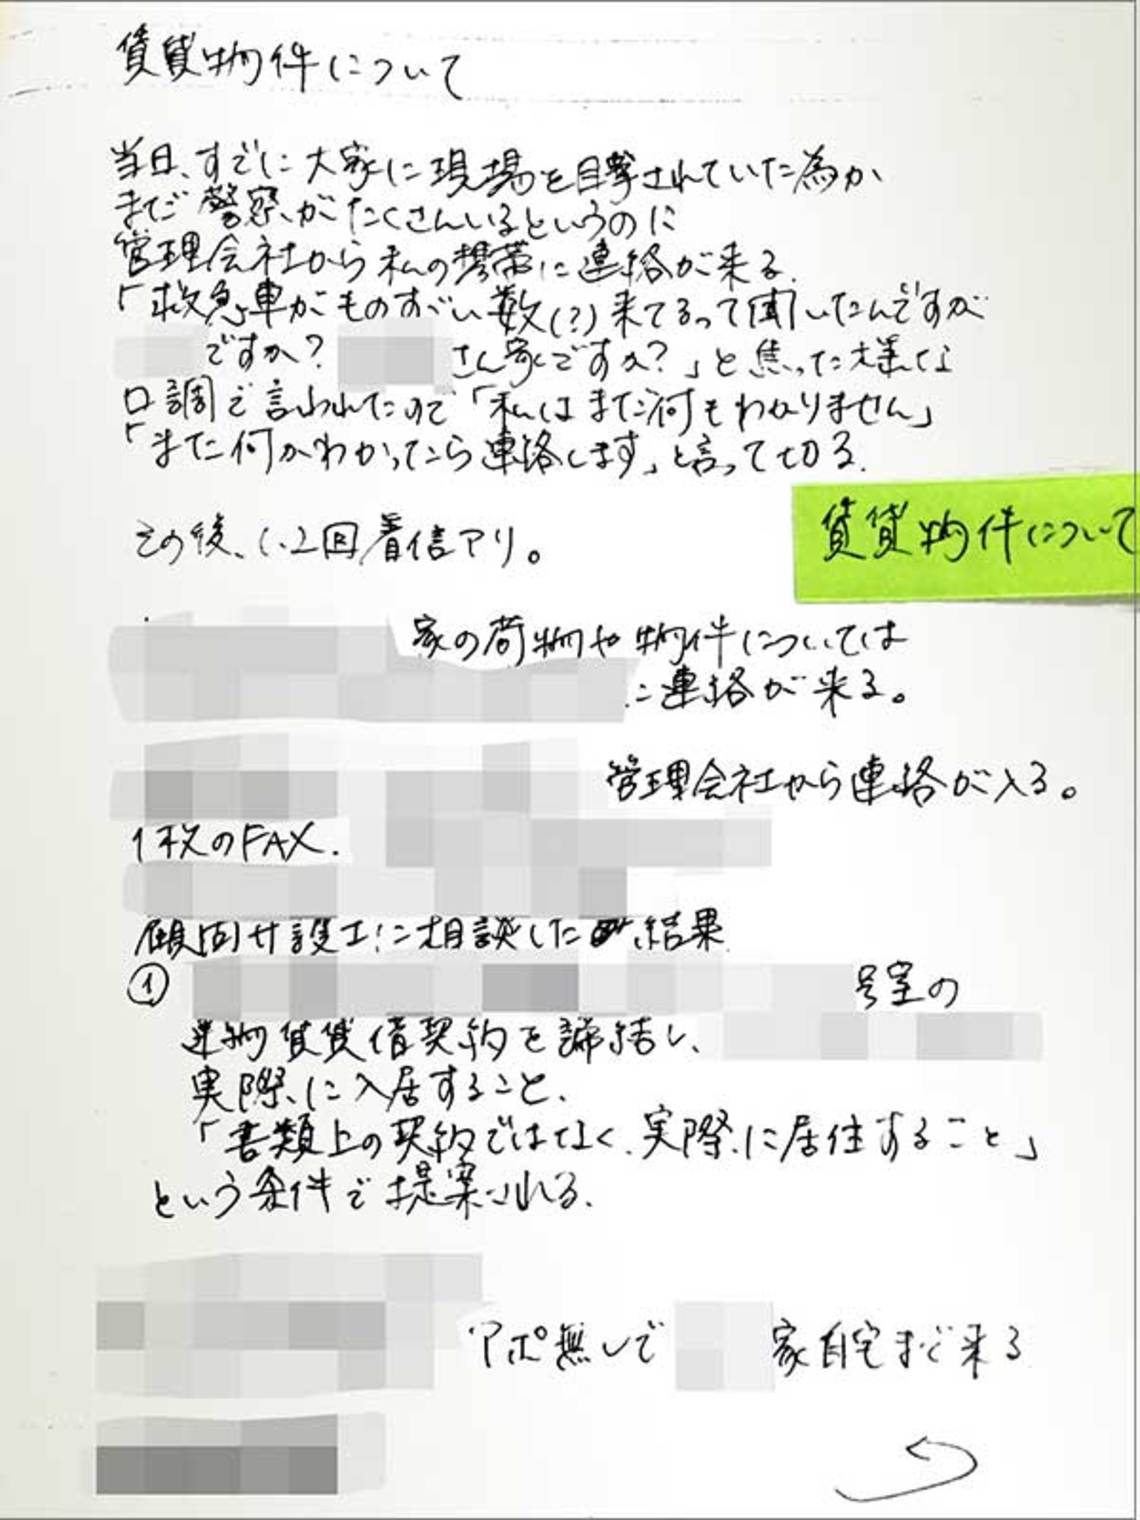 賃貸物件について
当日、すでに大家に現場を目撃されていた為か、
まだ警察がたくさんいるというのに
管理会社から私の携帯に連絡が来る。
「救急車がものすごい数(?)来てるって聞いたんですが
ですか? さん家ですか?」と焦った様な
口調で言われたので「私はまだ何もわかりません」
「また何かわかったら連絡します」と言って切る。
その後、1、2回着信アリ。
賃貸物件について
家の荷物や物件については
に連絡が来る。
管理会社から連絡が入る。
1枚のFAX.
顧問弁護士に相談した結果
① 号室の
建物賃貸借契約を締結し、
実際に入居すること、
「書類上の契約ではなく、実際に居住すること」
という条件で提案される。
アポ無しで 家自宅まで来る